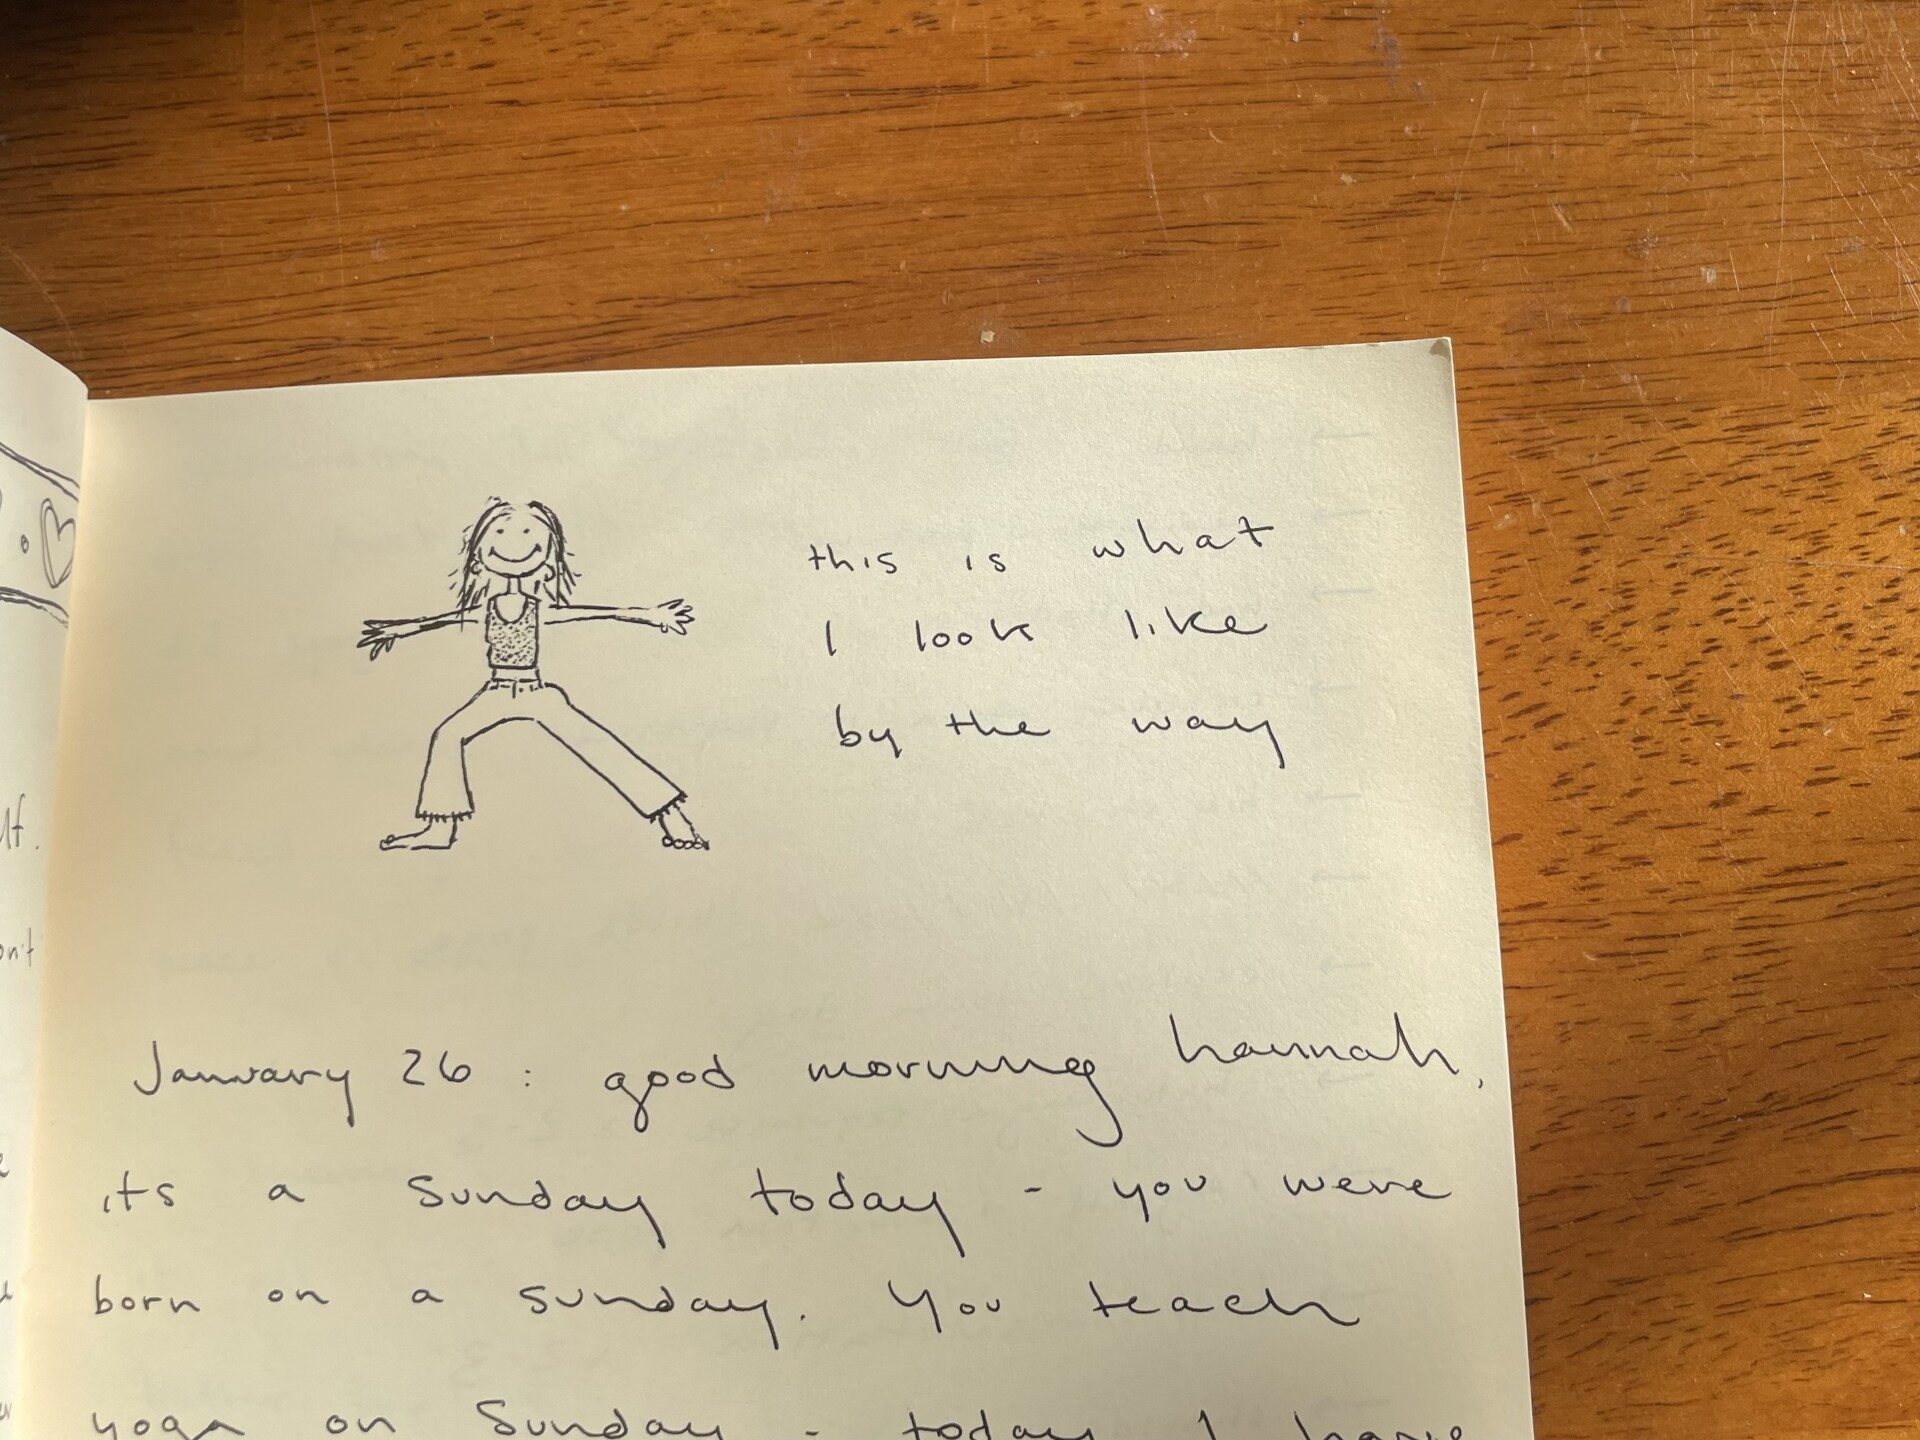 this is what
I look like
by the way
January 26 : good morning hannah,
its a sunday today - you were
born on a sunday. You teach
yoga on Sunday - today I have